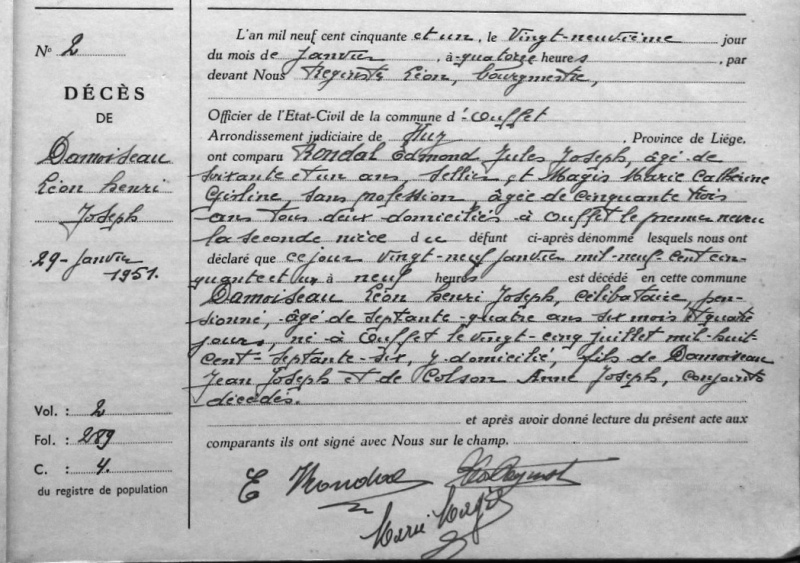 N° 2
DÉCÈS
DE
Damoiseau
Léon henri
Joseph
29-Janvier
1951.
Vol. : 2
Fol. : 289
C. : 4.
du registre de population
L'an mil neuf cent cinquante et un, le Vingt-neuvième jour
du mois de Janvier, à quatorze heures, par
devant Nous Léon, bourgmestre,
Officier de l'Etat-Civil de la commune d'Ouffet
Arrondissement judiciaire de Huy, Province de Liége,
ont comparu Rondal Edmond Jules Joseph, âgé de
soixante et un ans, sellier, et Magis Marie Catherine
Ghisline, sans profession, âgée de cinquante trois
ans tous deux domiciliés à Ouffet le premier neveu
la seconde nièce du défunt ci-après dénommé lesquels nous ont
déclaré que ce jour vingt-neuf janvier mil-neuf-cent cin-
quante et un à neuf heures est décédé en cette commune
Damoiseau Léon henri Joseph, célibataire, pen-
sionné, âgé de septante-quatre ans six mois et quatre
jours, né à Ouffet le vingt-cinq juillet mil-huit-
cent-septante-six, y domicilié, fils de Damoiseau
Jean Joseph et de Colson Anne Joseph, conjoints
décédés.
et après avoir donné lecture du présent acte aux
comparants ils ont signé avec Nous sur le champ.
E Rondal
Marie Magis